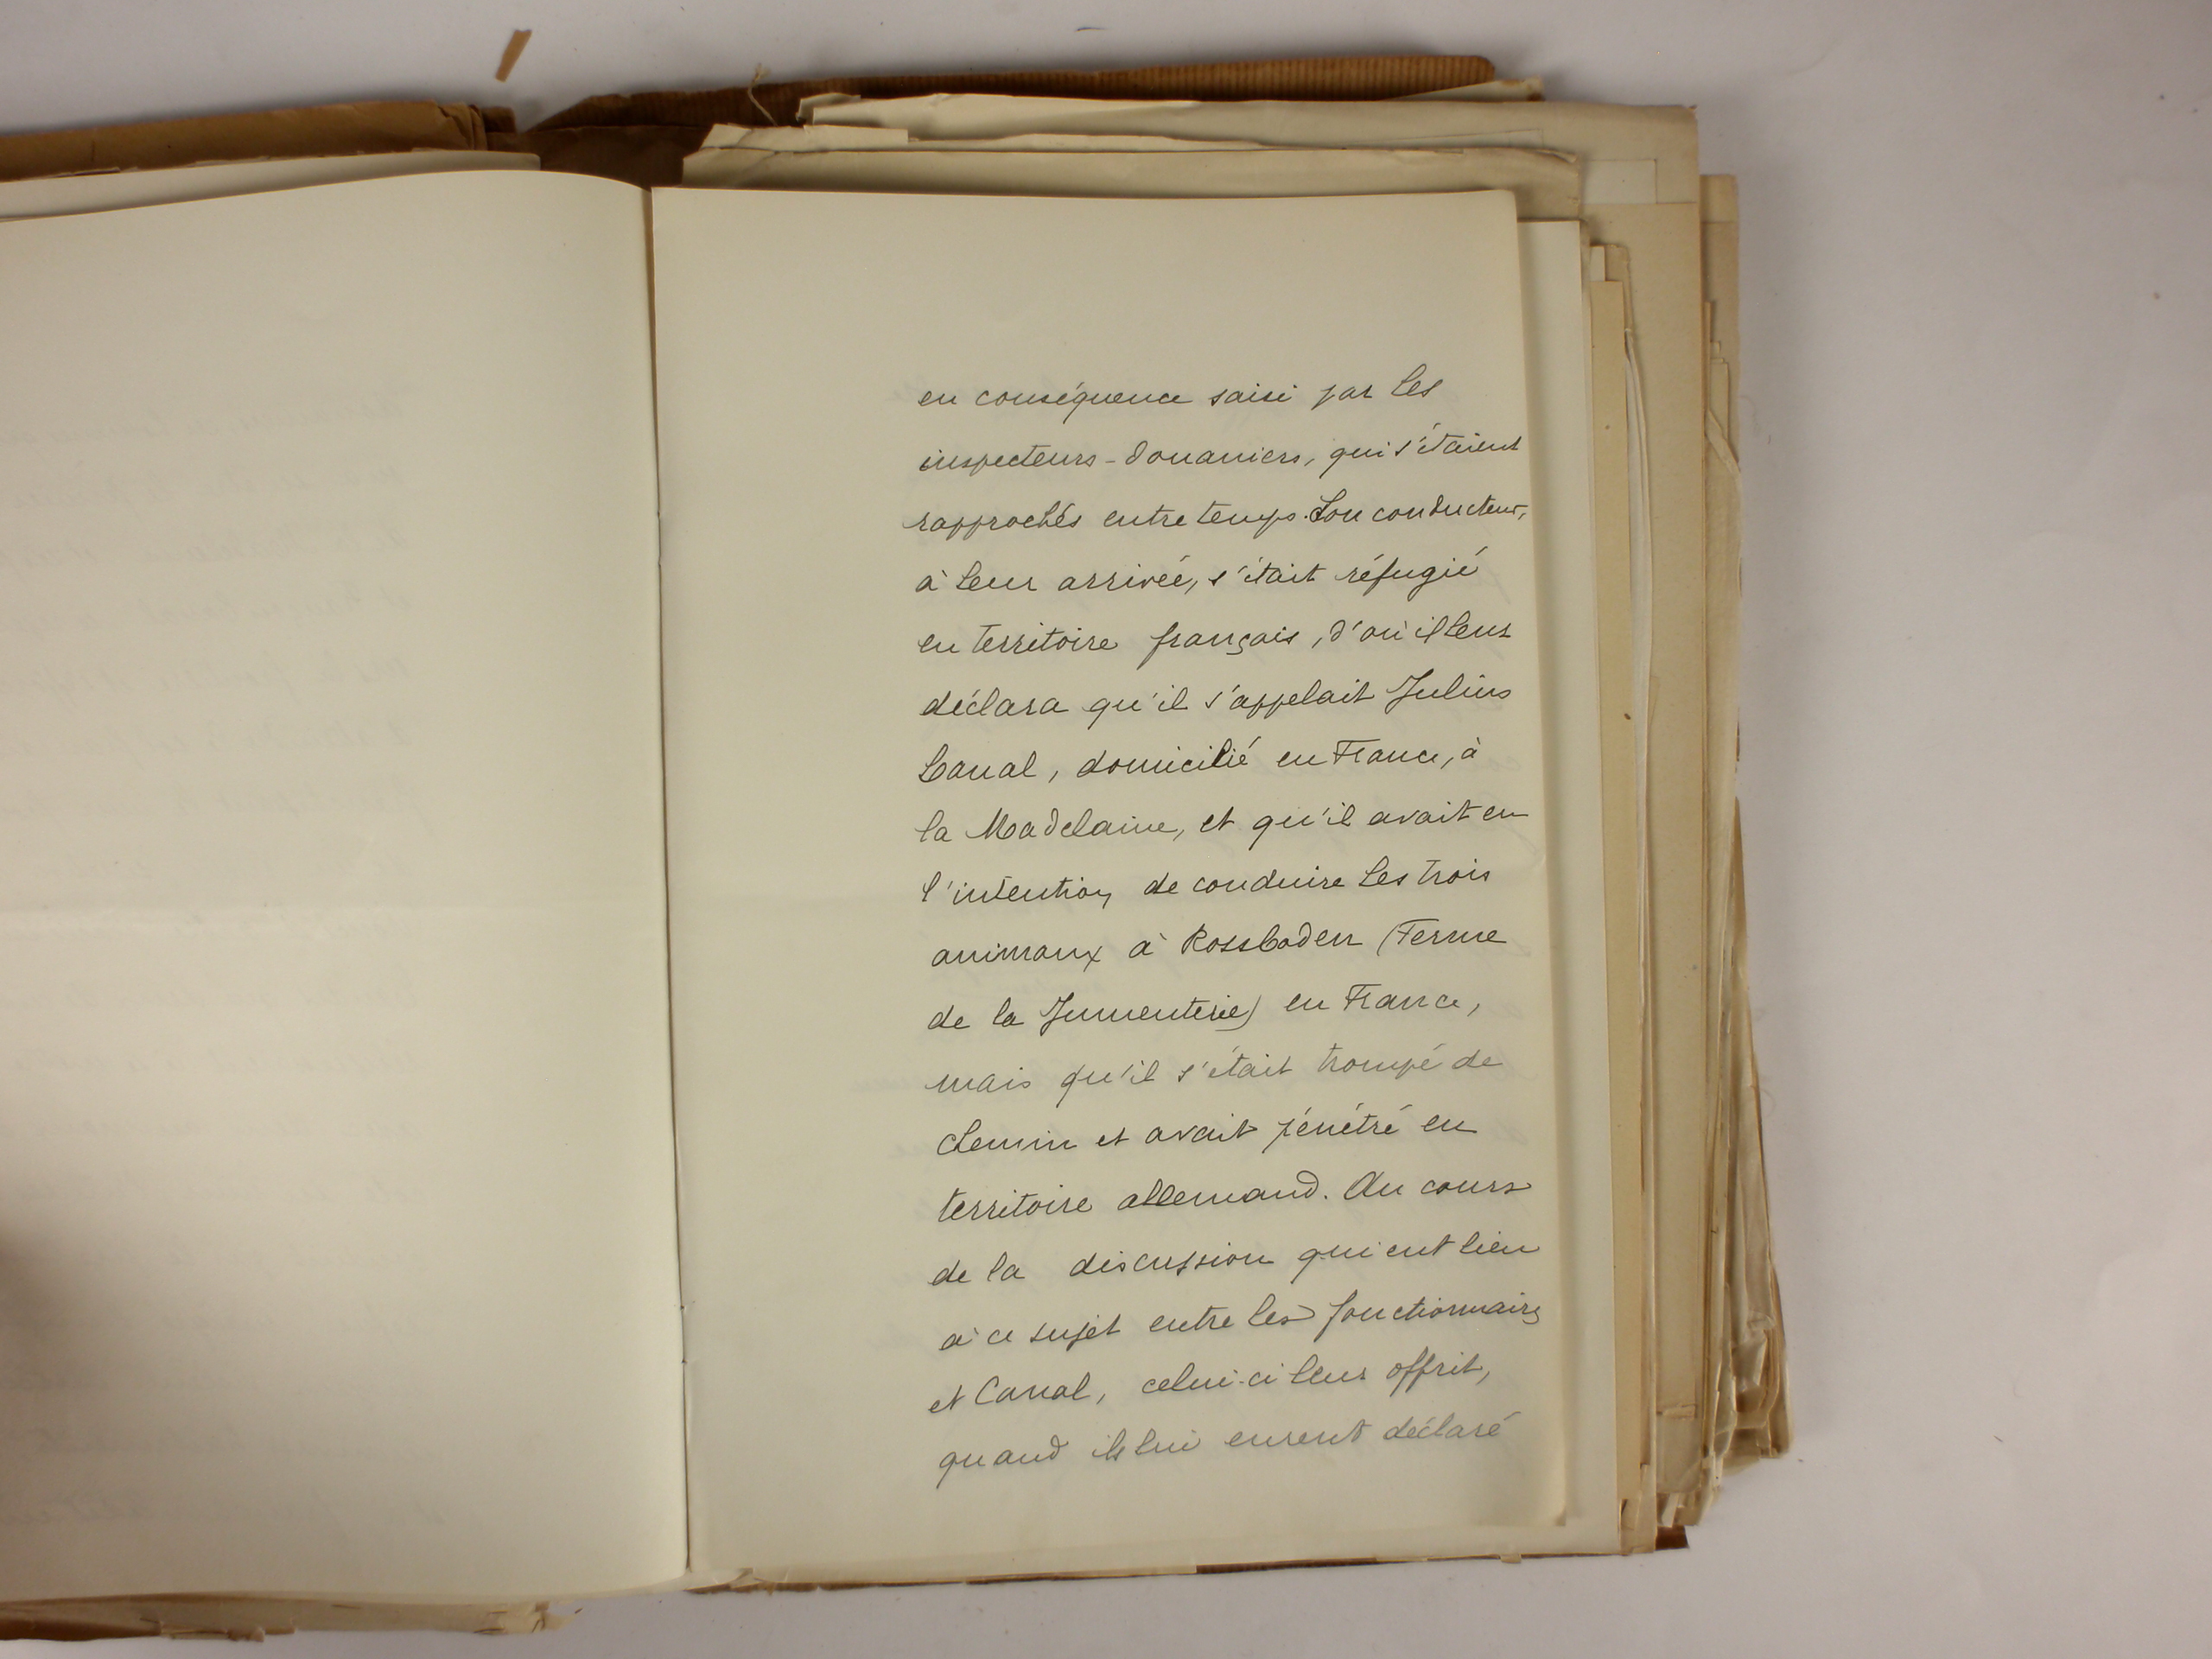 en conséquence saisi par les
inspecteurs-douaniers, qui s'étaient
rapprochés entre temps. Son conducteur,
à leur arrivée, s'était réfugié
en territoire français, d'où il leur
déclara qu'il s'appelait Julius
Canal, domicilié en France, à
la Madelaine, et qu'il avait eu
l'intention de conduire les trois
animaux à Rossboden (Ferme
de la Jumenterie) en France,
mais qu'il s'était trompé de
chemin et avait pénétré en
territoire allemand. Au cours
de la discussion qui eut lieu
à ce sujet entre les fonctionnaires
et Canal, celui-ci leur offrit,
quand ils lui eurent déclaré